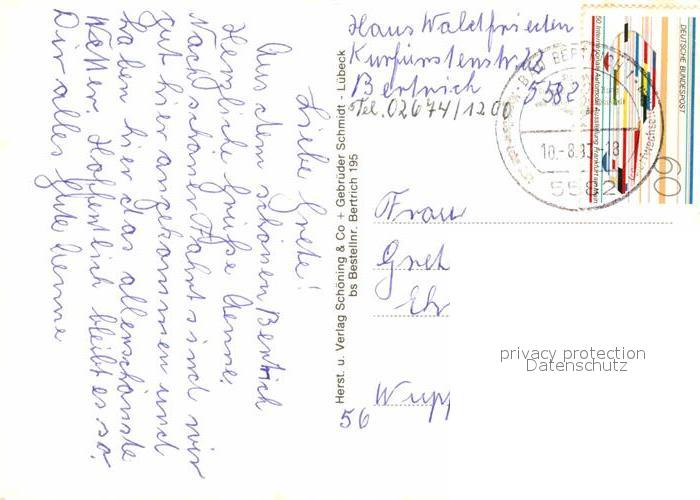 Liebe Grete!
Aus dem schönen Bertrich
Herzliche Grüße Aenne.
Nach schöner Fahrt sind wir
gut hier angekommen und
haben hier das allerschönste
Wetter. Hoffentlich bleibt es so.
Dir alles Gute Aenne
Herst. u. Verlag Schöning & Co + Gebrüder Schmidt - Lübeck
bs Bestellnr. Bertrich 195
Haus Waldfrieden
Kurfürstenstr.
Bertrich 5582
Tel. 02674/1200
50 Internationale Automobil-Ausstellung Frankfurt am Main
DEUTSCHE BUNDESPOST
60
BAD BERTRICH
10.-8.83-18
5582
Frau
Gret
Ehr
Wupp
56
privacy protection
Datenschutz